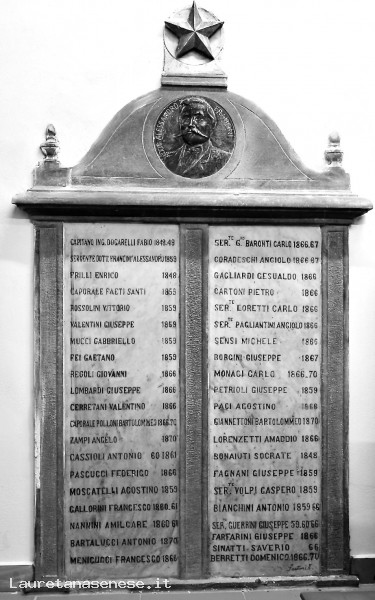 ALESSANDRO FRANCINI
CAPITANO ING. DOGARELLI FABIO 1848.49
SERGENTE DOTT. FRANCINI ALESSANDRO 1859
FRILLI ENRICO 1848
CAPORALE FAETI SANTI 1859
ROSSOLINI VITTORIO 1859
VALENTINI GIUSEPPE 1859
MUCCI GABBRIELLO 1859
FEI GAETANO 1859
REGOLI GIOVANNI 1866
LOMBARDI GIUSEPPE 1866
CERRETANI VALENTINO 1866
CAPORALE POLLONI BARTOLOMMEO 1866.70
ZAMPI ANGELO 1870
CASSIOLI ANTONIO 60 1861
PASCUCCI FEDERIGO 1866
MOSCATELLI AGOSTINO 1859
GALLORINI FRANCESCO 1860.61
NANNINI AMILCARE 1860 61
BARTALUCCI ANTONIO 1870
MENICUCCI FRANCESCO 1860
SER.TE G. BARONTI CARLO 1866.67
CORADESCHI ANGIOLO 1866 67
GAGLIARDI GESUALDO 1866
CARTONI PIETRO 1866
SER.TE LORETTI CARLO 1866
SER.TE PAGLIANTINI ANGIOLO 1866
SENSI MICHELE 1866
BORGINI GIUSEPPE 1867
MONACI CARLO 1866.70
PETRIOLI GIUSEPPE 1859
PACI AGOSTINO 1868
GIANNETTONI BARTOLOMMEO 1870
LORENZETTI AMADDIO 1866
BONAIUTI SOCRATE 1848
FAGNANI GIUSEPPE 1859
SER.TE VOLPI GASPERO 1859
BIANCHINI ANTONIO 1859 66
SER. GUERRINI GIUSEPPE 59.60 66
FARFARINI GIUSEPPE 1866
SINATTI SAVERIO 66
BERRETTI DOMENICO 1866.70
Lauretanasenese.it